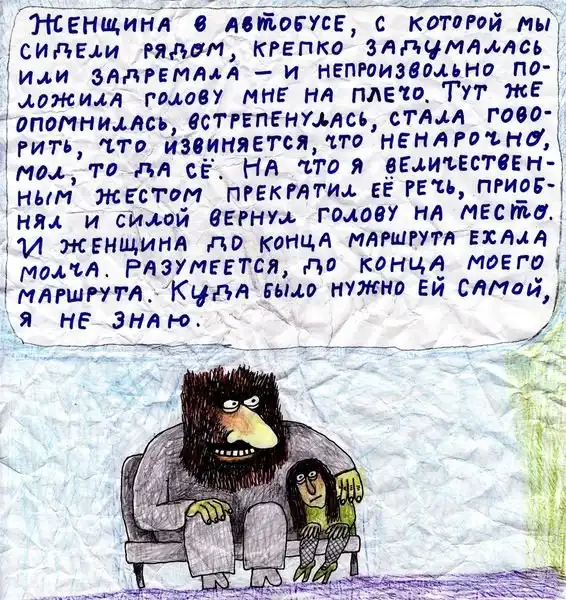 Женщина в автобусе, с которой мы
сидели рядом, крепко задумалась
или задремала — и непроизвольно по-
ложила голову мне на плечо. Тут же
опомнилась, встрепенулась, стала гово-
рить, что извиняется, что ненарочно,
мол, то да сё. На что я величествен-
ным жестом прекратил её речь, приоб-
нял и силой вернул голову на место.
И женщина до конца маршрута ехала
молча. Разумеется, до конца моего
маршрута. Куда было нужно ей самой,
я не знаю.